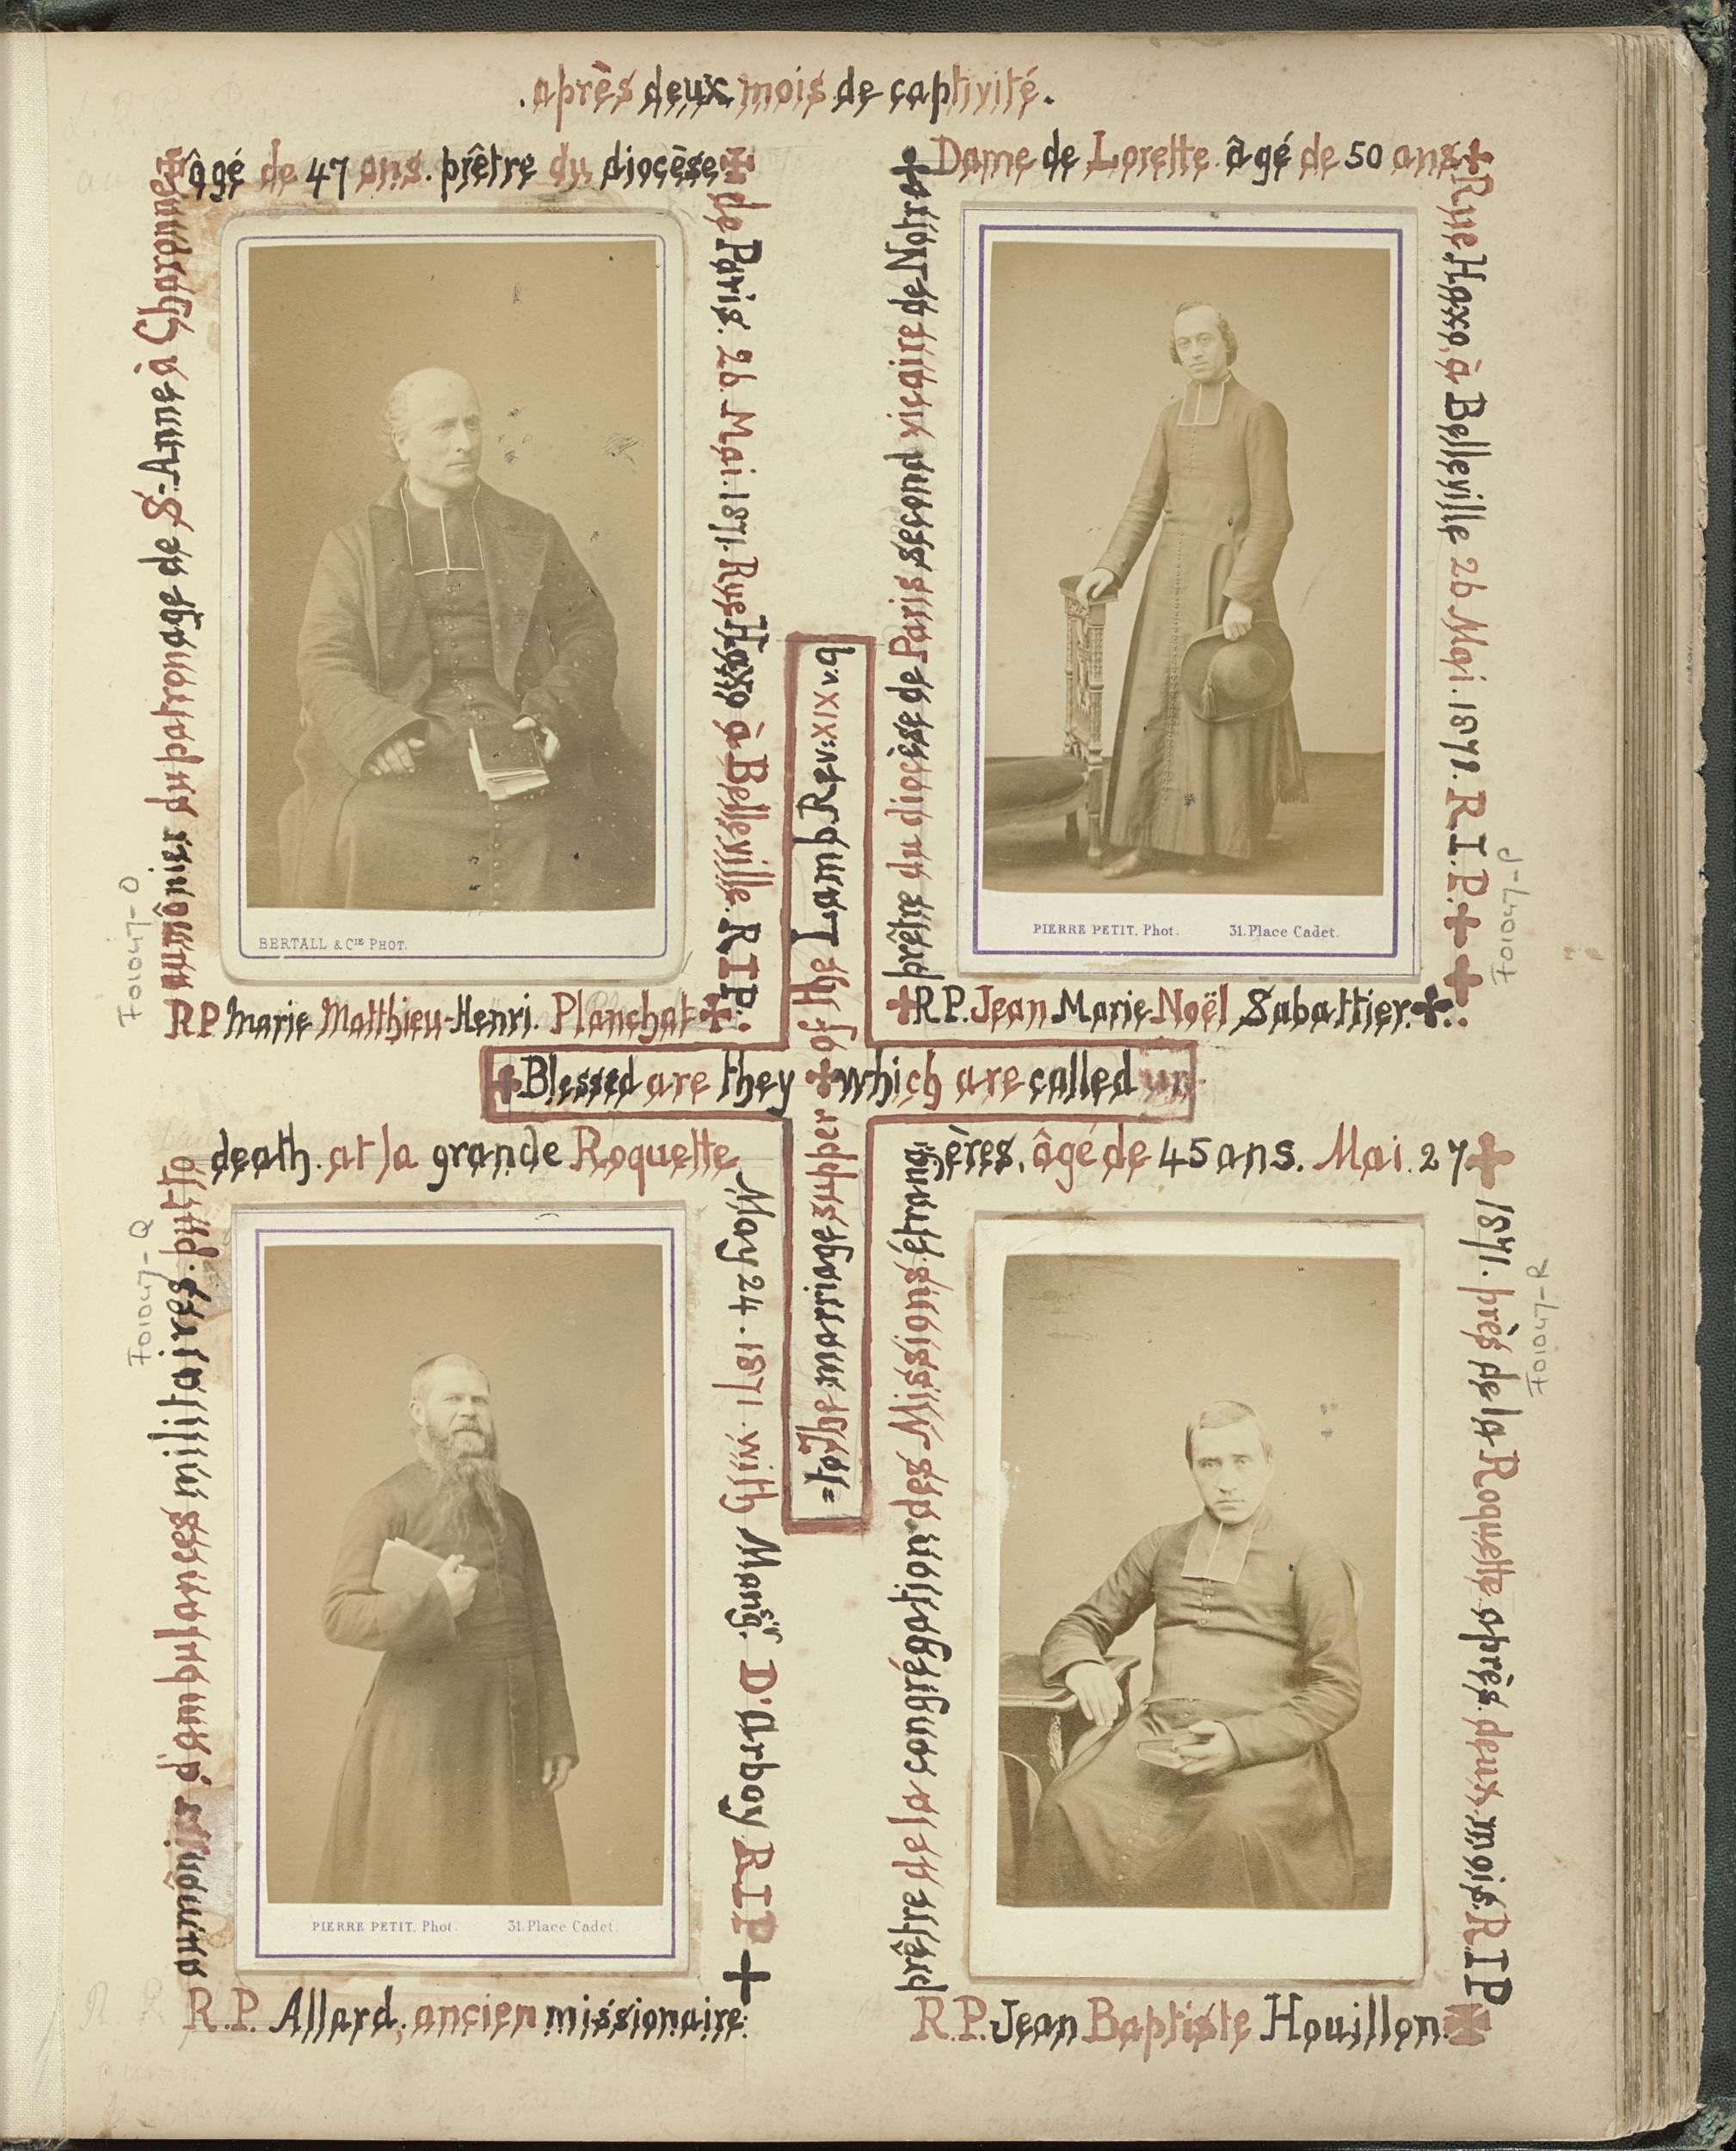 .après deux mois de captivité.
R P Marie Matthieu-Henri. Planchat
aumônier du patronage de S-Anne à Charonne
âgé de 47 ans. prêtre du diocèse
de Paris. 26. Mai. 1871. Rue Haxo à Belleville. R I P.
BERTALL & Cie PHOT.
F01047-O
R.P. Jean Marie Noël Sabattier.
prêtre du diocèse de Paris second vicaire de Notre
Dame de Lorette âgé de 50 ans
Rue Haxo, à Belleville 26 Mai. 1871. R. I. P.
PIERRE PETIT. Phot. 31. Place Cadet.
F01047-P
Blessed are they which are called un
=to The marriage supper of the Lamb. Rev: XIX v. 9
R. P. Allard, ancien missionaire.
aumônier d'ambulances militaires. put to
death. at la grande Roquette
May 24. 1871. with Mongr. D'Arboy R I P
PIERRE PETIT. Phot. 31. Place Cadet.
F01047-Q
R. P. Jean Baptiste Houillon.
prêtre de la congrégation des Missions étrang
ères, âgé de 45 ans. Mai. 27
1871. près de la Roquette après. deux. mois. R I P
F01047-R